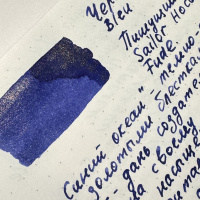 Чер
Bleu
Пишущий
Sailor Hoc
Fude
Синий океан" - темно-с
золотыми блестка
- дань создател
на своему
насыще